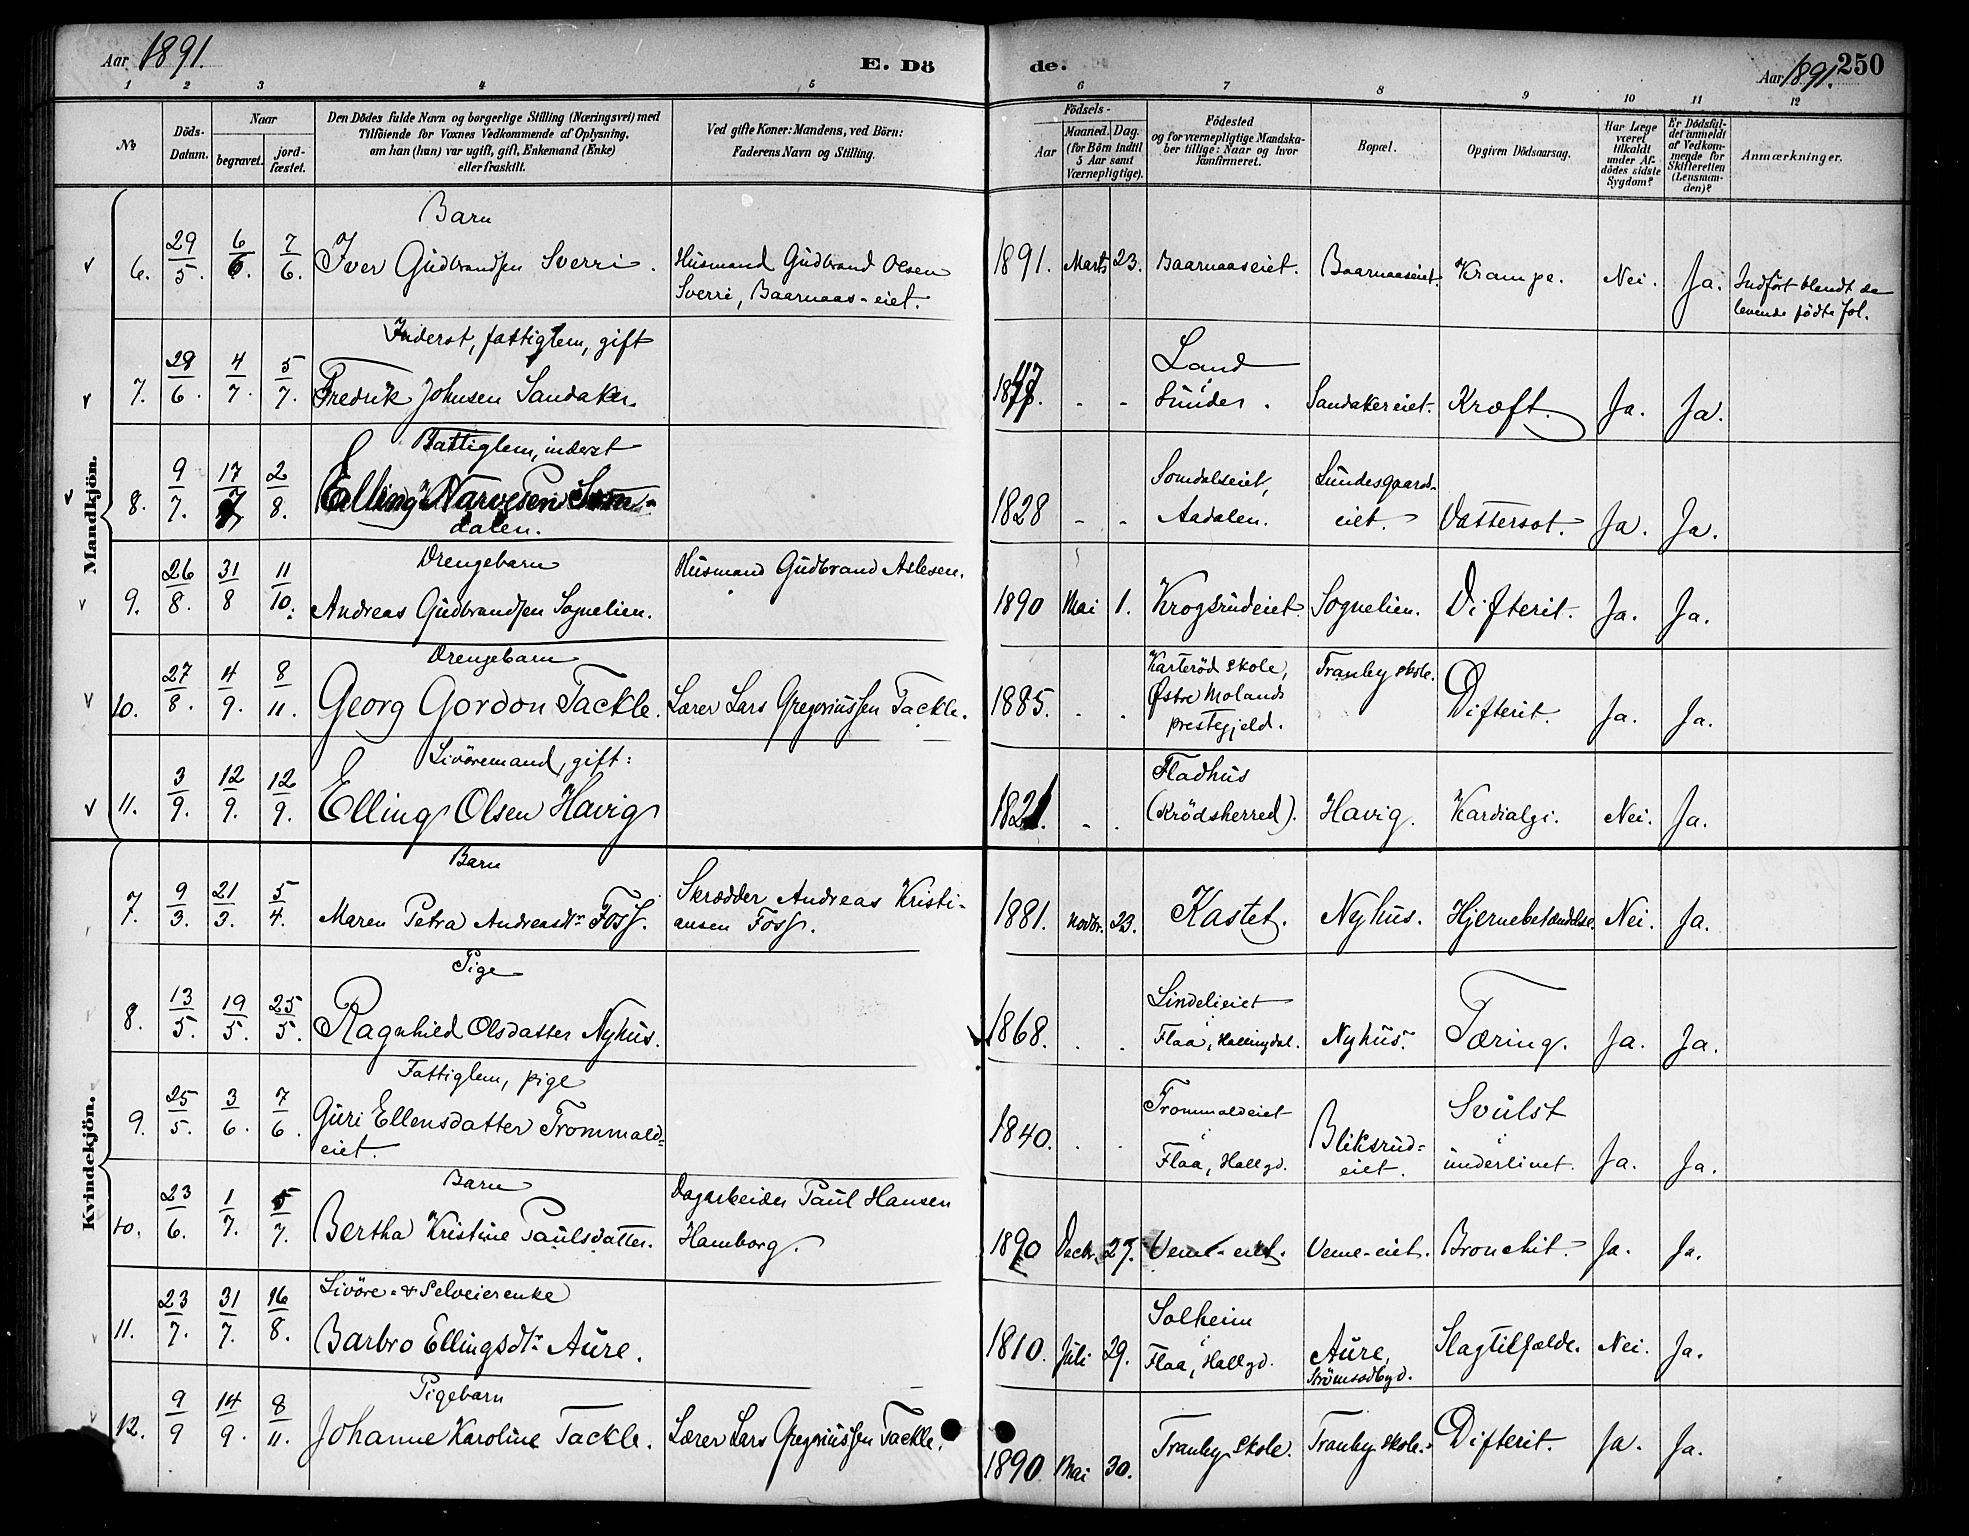 Aar 1891.
E. Dö
de.
Aar 1891.
250
1 2 3 4 5 6 7 8 9 10 11 12
No
Döds-
Datum.
Naar
begravet.
jord-
fæstet.
Den Dödes fulde Navn og borgerlige Stilling (Næringsvei) med
Tilföiende for Voxnes Vedkommende af Oplysning,
om han (hun) var ugift, gift, Enkemand (Enke)
eller fraskilt.
Ved gifte Koner: Mandens, ved Börn:
Faderens Navn og Stilling.
Födsels-
Aar
Maaned. Dag.
(for Börn indtil
5 Aar samt
Værnepligtige).
Födested
og for værnepligtige Mandska-
ber tillige: Naar og hvor
konfirmeret.
Bopæl.
Opgiven Dödsaarsag.
Har Læge
været
tilkaldt
under Af-
dödes sidste
Sygdom?
Er Dödsfal-
det anmeldt
af Vedkom-
mende for
Skifteretten
(Lensman-
den)?
Anmærkninger.
Mandkjön.
Barn
6. 29/5. 6/6. 7/6. Iver Gudbrandsen Sverri. Husmand Gudbrand Olsen
Sverri, Baarnaas-eiet.
1891. Marts 23. Baarnaaseiet. Baarnaaseiet. Krampe. Nei. Ja. Indfört blandt de
levende födte fol.
Inderst, fattiglem, gift
7. 29/6. 4/7. 5/7. Fredrik Johnsen Sandaker.
Land
Sünder. Sandakereiet. Kræft. Ja. Ja.
Fattiglem, inderst
8. 9/7. 17/7 2/8. Elling Narvesen Som-
dalen.
1828 - - Somdalseiet,
Aadalen. Sundesgaards-
eiet. Vattersot. Ja. Ja.
Drengebarn
9. 26/8. 31/8 11/10. Andreas Gudbrandsen Sognelien. Husmand Gudbrand Aslesen.
1890 Mai 1. Krogsrudeiet. Sognelien. Difterit. Ja. Ja.
Drengebarn
10. 27/8. 4/9. 8/11. Georg Gordon Tackle. Lærer Lars Gregoriussen Tackle.
1885. . . Karteröd skole,
Østre Molands
prestegjeld. Tranby skole. Difterit. Ja. Ja.
Livöremand, gift:
11. 3/9. 12/9. 12/9. Elling Olsen Havig
1821. - . Fladhus
(Krödsherred). Havig. Kardialgi. Nei. Ja.
Kvindekjön.
Barn
7. 9/3. 21/3. 5/4. Maren Petra Andreasdtr Foss. Skrædder Andreas Kristi-
ansen Foss.
1881. Novbr. 23. Kastet. Nyhus. Hjernebetændelse. Nei. Ja.
Pige
8. 13/5. 19/5. 25/5. Ragnhild Olsdatter Nyhus.
1868. . . Lindelieiet
Flaa, Hallingdal. Nyhus. Tæring. Ja. Ja.
Fattiglem, pige
9. 25/5. 3/6. 7/6. Guri Ellensdatter Trommald=
eiet.
1840. . . Trommaldeiet
Flaa, Hallgd. Bliksrud=
eiet. Svulst
i underlivet. Ja. Ja.
Barn
10. 23/6. 1/7. 5/7. Bertha Kristine Paulsdatter. Dagarbeider Paul Hansen
Hamborg.
1890 Decbr. 27. Veme-eiet. Veme-eiet. Bronchit. Ja. Ja.
Livöre- & Selveierenke
11. 23/7. 31/7. 16/8. Barbro Ellingsdtr Aure.
1810. Juli 29. Solheim
Flaa, Hallgd. Aure,
Strömsodbygd. Slagtilfælde. Nei. Ja.
Pigebarn
12. 9/9 14/9. 8/11. Johanne Karoline Tackle. Lærer Lars Gregoriussen Tackle.
1890. Mai 30. Tranby skole. Tranby skole. Difterit. Ja. Ja.